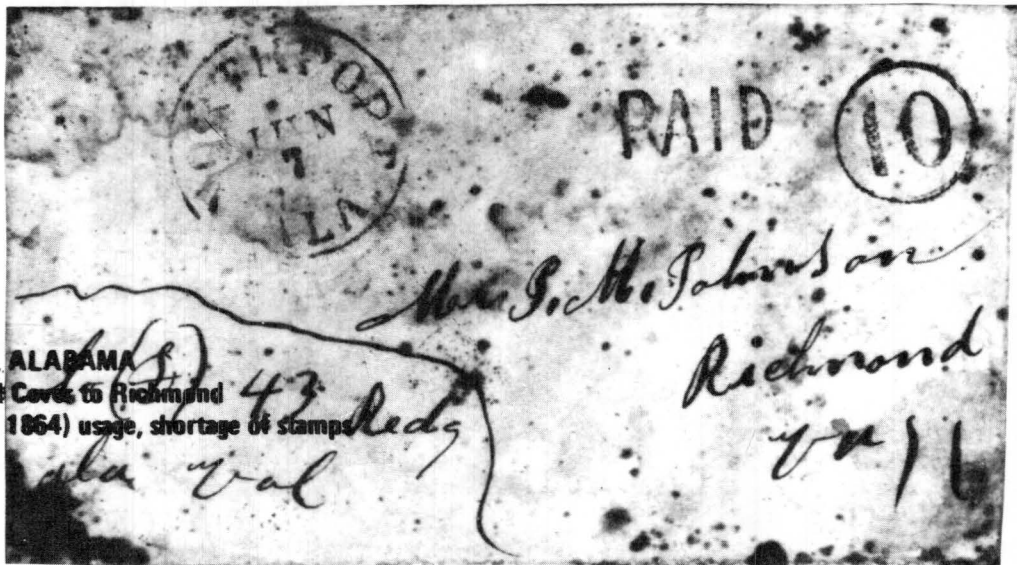 NORTHPORT
JUN
7
ALA
PAID
10
J. M. Johnson
Richmond
va
ALABAMA
Cover to Richmond
1864) usage, shortage of stamps
(s) 43 Redg
ala vol